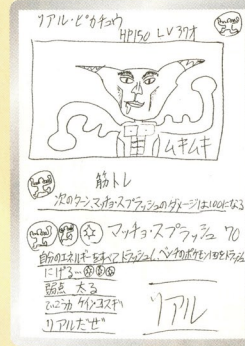 リアル・ピカチュウ
HP150 LV37才
ムキムキ
筋トレ
次のターン、マッチョ・スプラッシュのダメージは100になる
マッチョ・スプラッシュ 70
自分のエネルギーをすべてトラッシュし、ベンチのポケモン1匹をトラッシュ
にげる…
弱点 太る
ケイン・コスギ
リアルだぜ
リアル